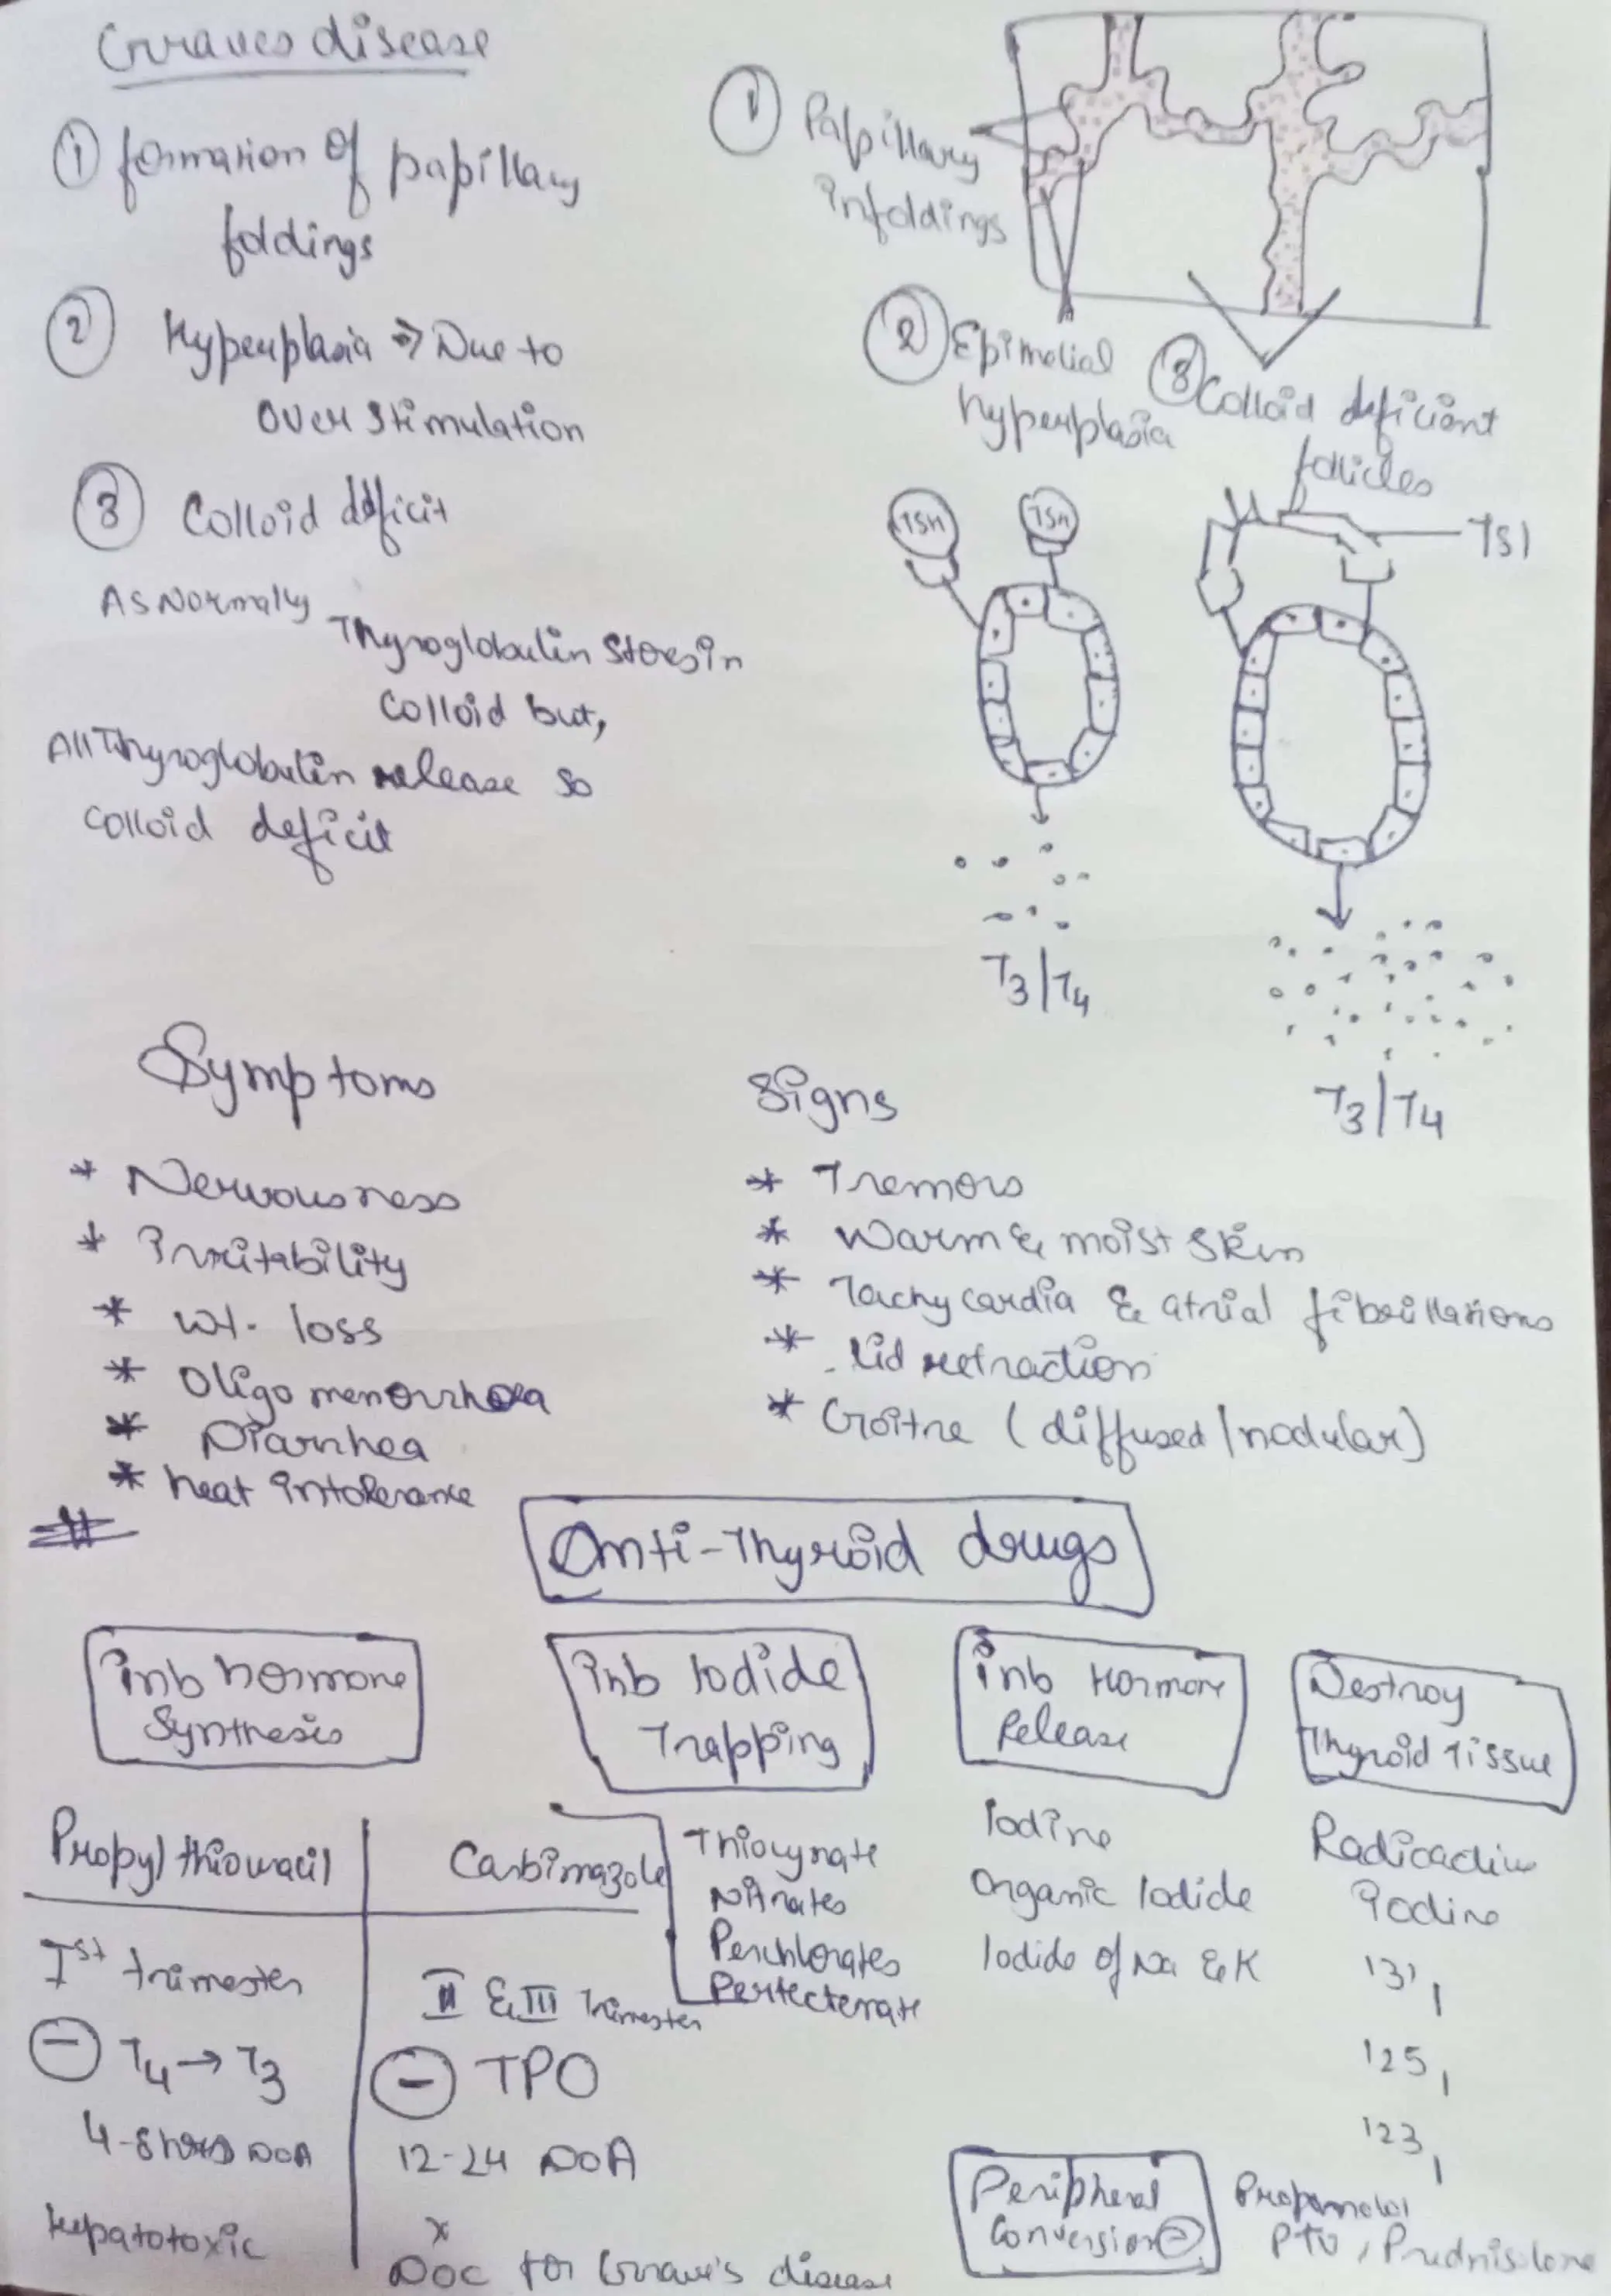 Graves disease
① formation of papillary
foldings
② Hyperplasia → Due to
Over stimulation
③ Colloid deficit
As Normally
Thyroglobulin stores in
Colloid but,
All Thyroglobulin release so
colloid deficit
① Papillary
infoldings
② Epithelial
hyperplasia
③ Colloid deficient
follicles
TSH
TSH
TSI
T3/T4
T3/T4
Symptoms
* Nervousness
* Irritability
* wt. loss
* Oligomenorrhoea
* Diarrhea
* heat intolerance
Signs
* Tremors
* Warm & moist skin
* Tachycardia & atrial fibrillations
* Lid retraction
* Goitre (diffused/nodular)
Anti-Thyroid drugs
inb hormone
Synthesis
inb Iodide
Trapping
inb Hormone
Release
Destroy
Thyroid Tissue
Propylthiouracil
Ist trimester
⊖ T4 → T3
4-8 hrs DOA
Hepatotoxic
Carbimazole
II & III Trimester
⊖ TPO
12-24 DOA
x
DOC for Grave's disease
Thiocynate
Nitrates
Perchlorates
Pertecterate
Iodine
Organic Iodide
Iodide of Na & K
Radioactive
Iodine
131 I
125 I
123 I
Peripheral
Conversion ⊖
Propanolol
PTU, Prednisolone